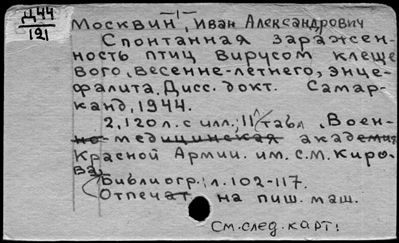 Д44
121
Москвин, Иван Александрович
Спонтанная заражен-
ность птиц вирусом клеще
вого, весенне-летнего, энце-
фалита. Дисс. докт. Самар-
канд, 1944.
2, 120 л. с илл., 11 табл. (Воен-
но медицинская академия
Красной Армии. им. С.М. Киро-
ва)
Библиогр.: л. 102-117.
Отпечат на пиш. маш.
См. след. карт: